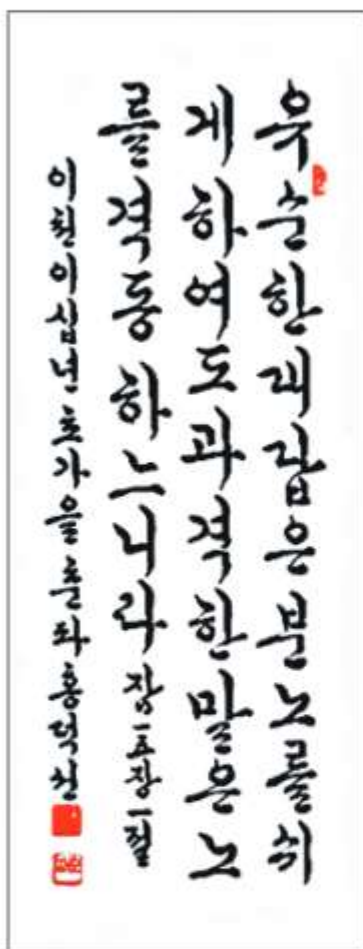 유순한대답은분노를쉬
게하여도과격한말은노
를격동하느니라 잠一五장一절
이천이십년 초가을